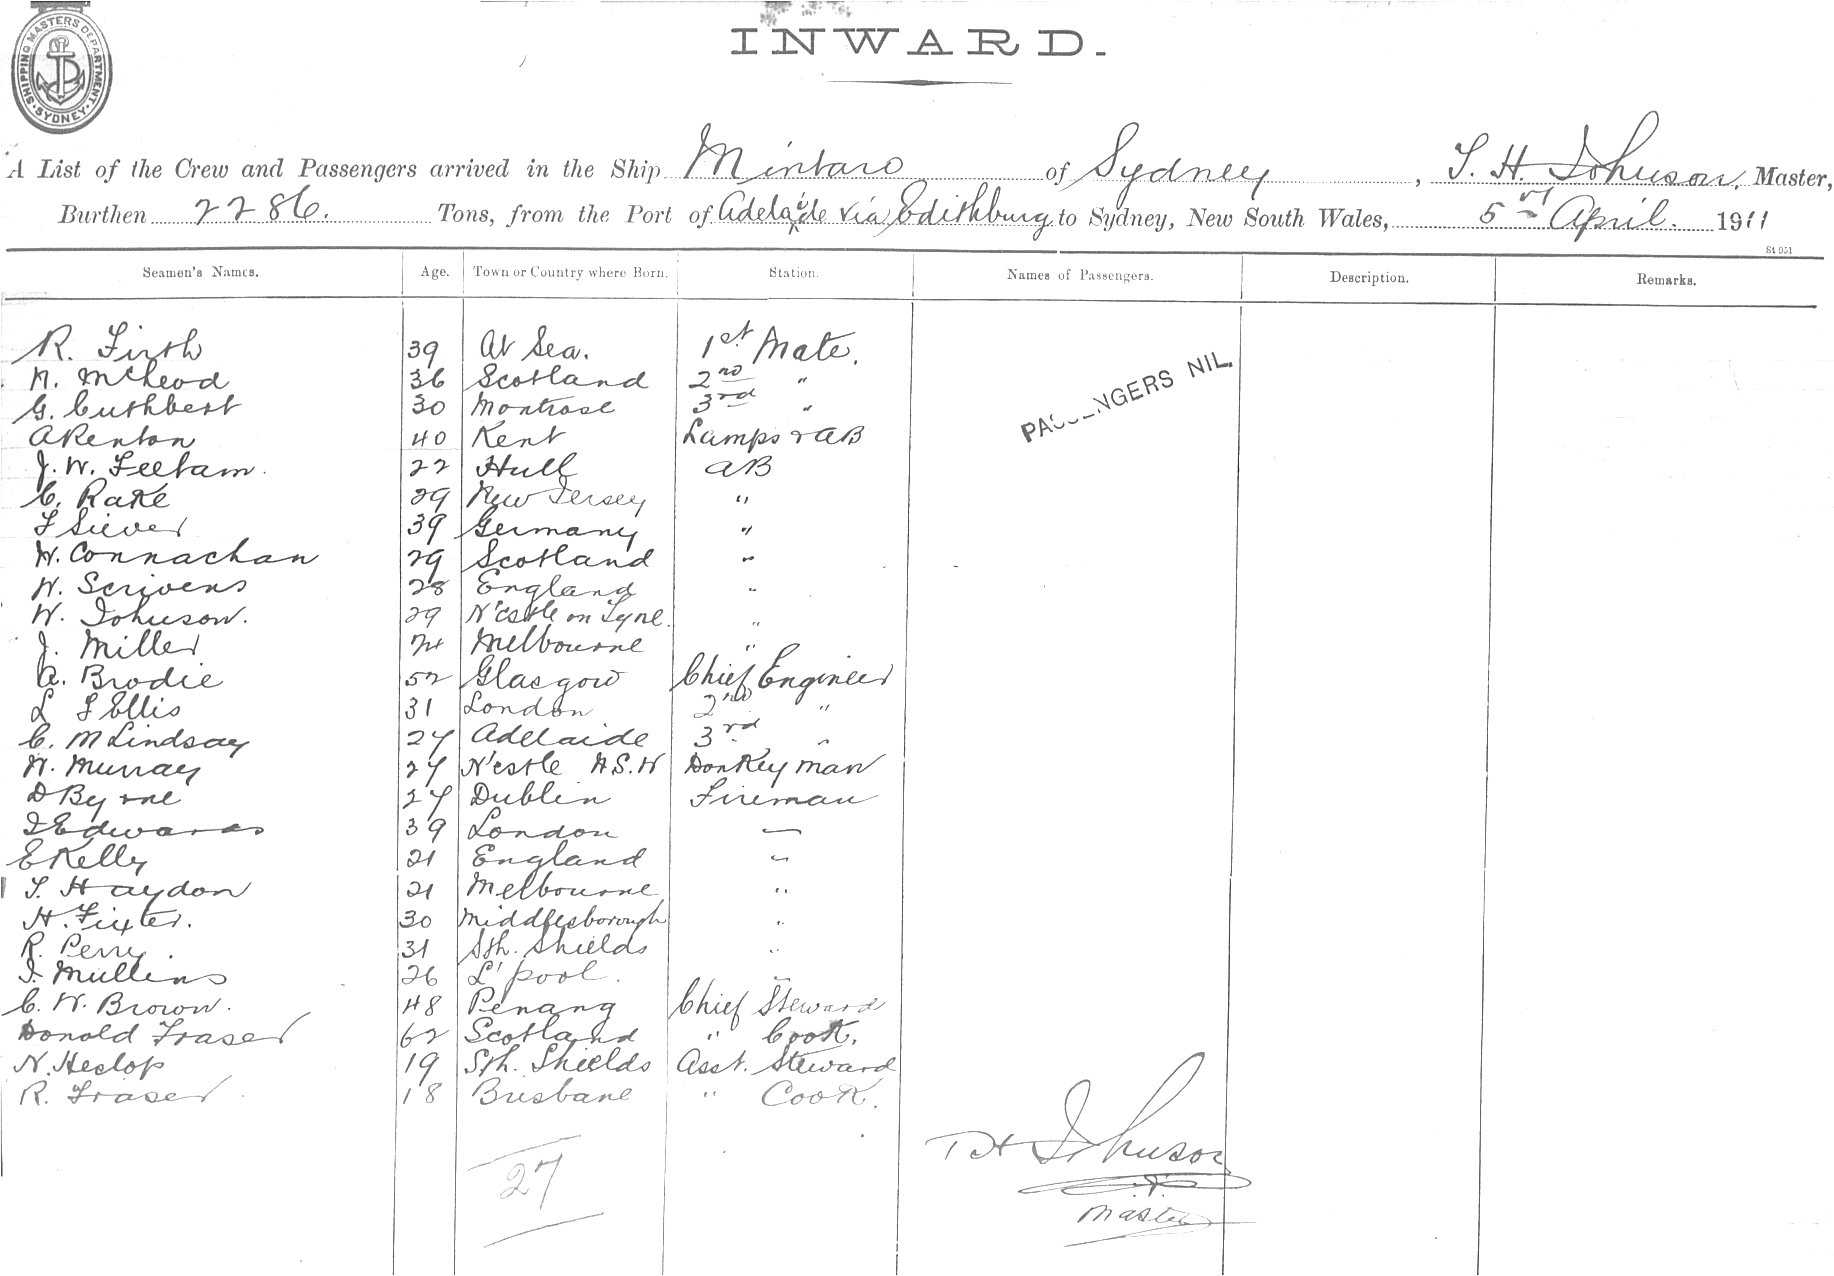 SHIPPING MASTERS DEPARTMENT SYDNEY
INWARD.
A List of the Crew and Passengers arrived in the Ship Mintaro of Sydney, T. H. Johnson. Master,
Burthen 2286. Tons, from the Port of Adelaide via Edithburg to Sydney, New South Wales, 5 April. 1911
St 951
Seamen's Names. Age. Town or Country where Born. Station. Names of Passengers. Description. Remarks.
R. Firth 39 At Sea. 1st Mate.
N. McLeod 36 Scotland 2nd "
G. Cuthbert 30 Montrose 3rd "
PASSENGERS NIL.
A Renton 40 Kent Lamps & AB
J. W. Feetam. 22 Hull AB
C. Rake 29 New Jersey "
F Siever 39 Germany "
W. Connachan 29 Scotland "
W. Scrivens 28 England "
W. Johnson. 29 N'castle on Tyne. "
J. Miller 24 Melbourne "
A. Brodie 52 Glasgow Chief Engineer
L F Ellis 31 London 2nd "
C. M Lindsay 27 Adelaide 3rd "
W. Murray 27 N'castle N.S.W Donkeyman
D Byrne 27 Dublin Fireman
J Edwards 39 London "
E Kelly 21 England "
T. Haydon 21 Melbourne "
H. Fixter. 30 Middlesborough "
R. Perry. 31 Sth. Shields "
J. Mullins 26 L'pool. "
C. W. Brown. 48 Penang Chief Steward
Donald Fraser 62 Scotland " Cook.
N. Heslop 19 Sth. Shields Asst. Steward
R. Fraser 18 Brisbane " Cook.
27
T H Johnson
Master